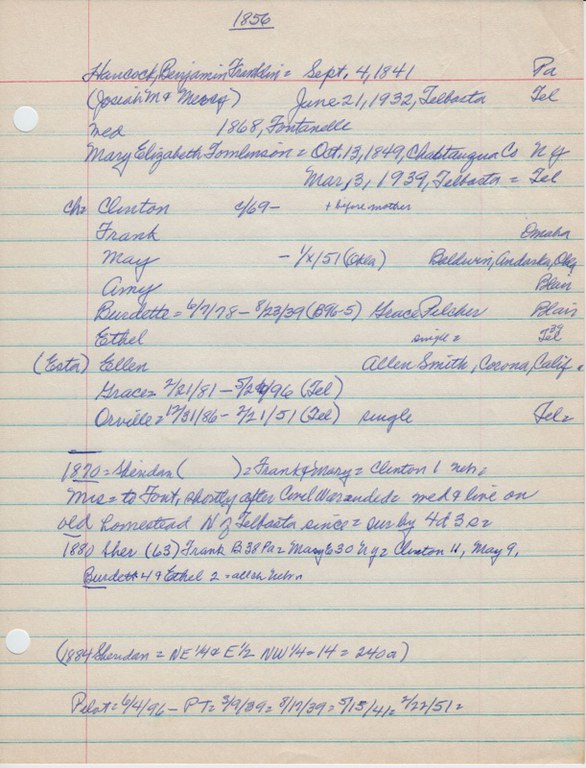 1856
Hancock, Benjamin Franklin = Sept. 4, 1841 Pa
(Josiah M & Mercy) June 21, 1932, Telbasta Tel
med 1868, Fontanelle
Mary Elizabeth Tomlinson = Oct. 13, 1849, Chabtauqua Co N Y
Mar, 3, 1939, Telbasta = Tel
ch = Clinton c/69 - + before mother
Frank Omaha
May - 1/x/51 (Okla) Baldwin, Andarka, Okla
Amy Blair
Burdette = 6/7/78 - 8/23/39 (B96-5) Grace Pilcher Blair
Ethel single = Tel 39
(Esta) Ellen Allen Smith, Corona, Calif.
Grace = 2/21/81 - 5/29/96 (Tel)
Orville = 12/31/86 - 2/21/51 (Tel) single Tel =
1870 = Sheridan ( ) = Frank & Mary = Clinton 1 Neb =
Mrs = to Font, shortly after Civil War ended = med & live on
old homestead N of Telbasta since = sur by 4d 3s =
1880 Sher (63) Frank B 38 Pa = Mary E 30 N Y = Clinton 11, May 9,
Burdett 4 & Ethel 2 = all ch Neb =
(1884 Sheridan = NE 1/4 & E 1/2 NW 1/4 = 14 = 240 a)
Pilot = 6/4/96 - PT = 3/9/39 = 8/17/39 = 5/15/41 = 2/22/51 =